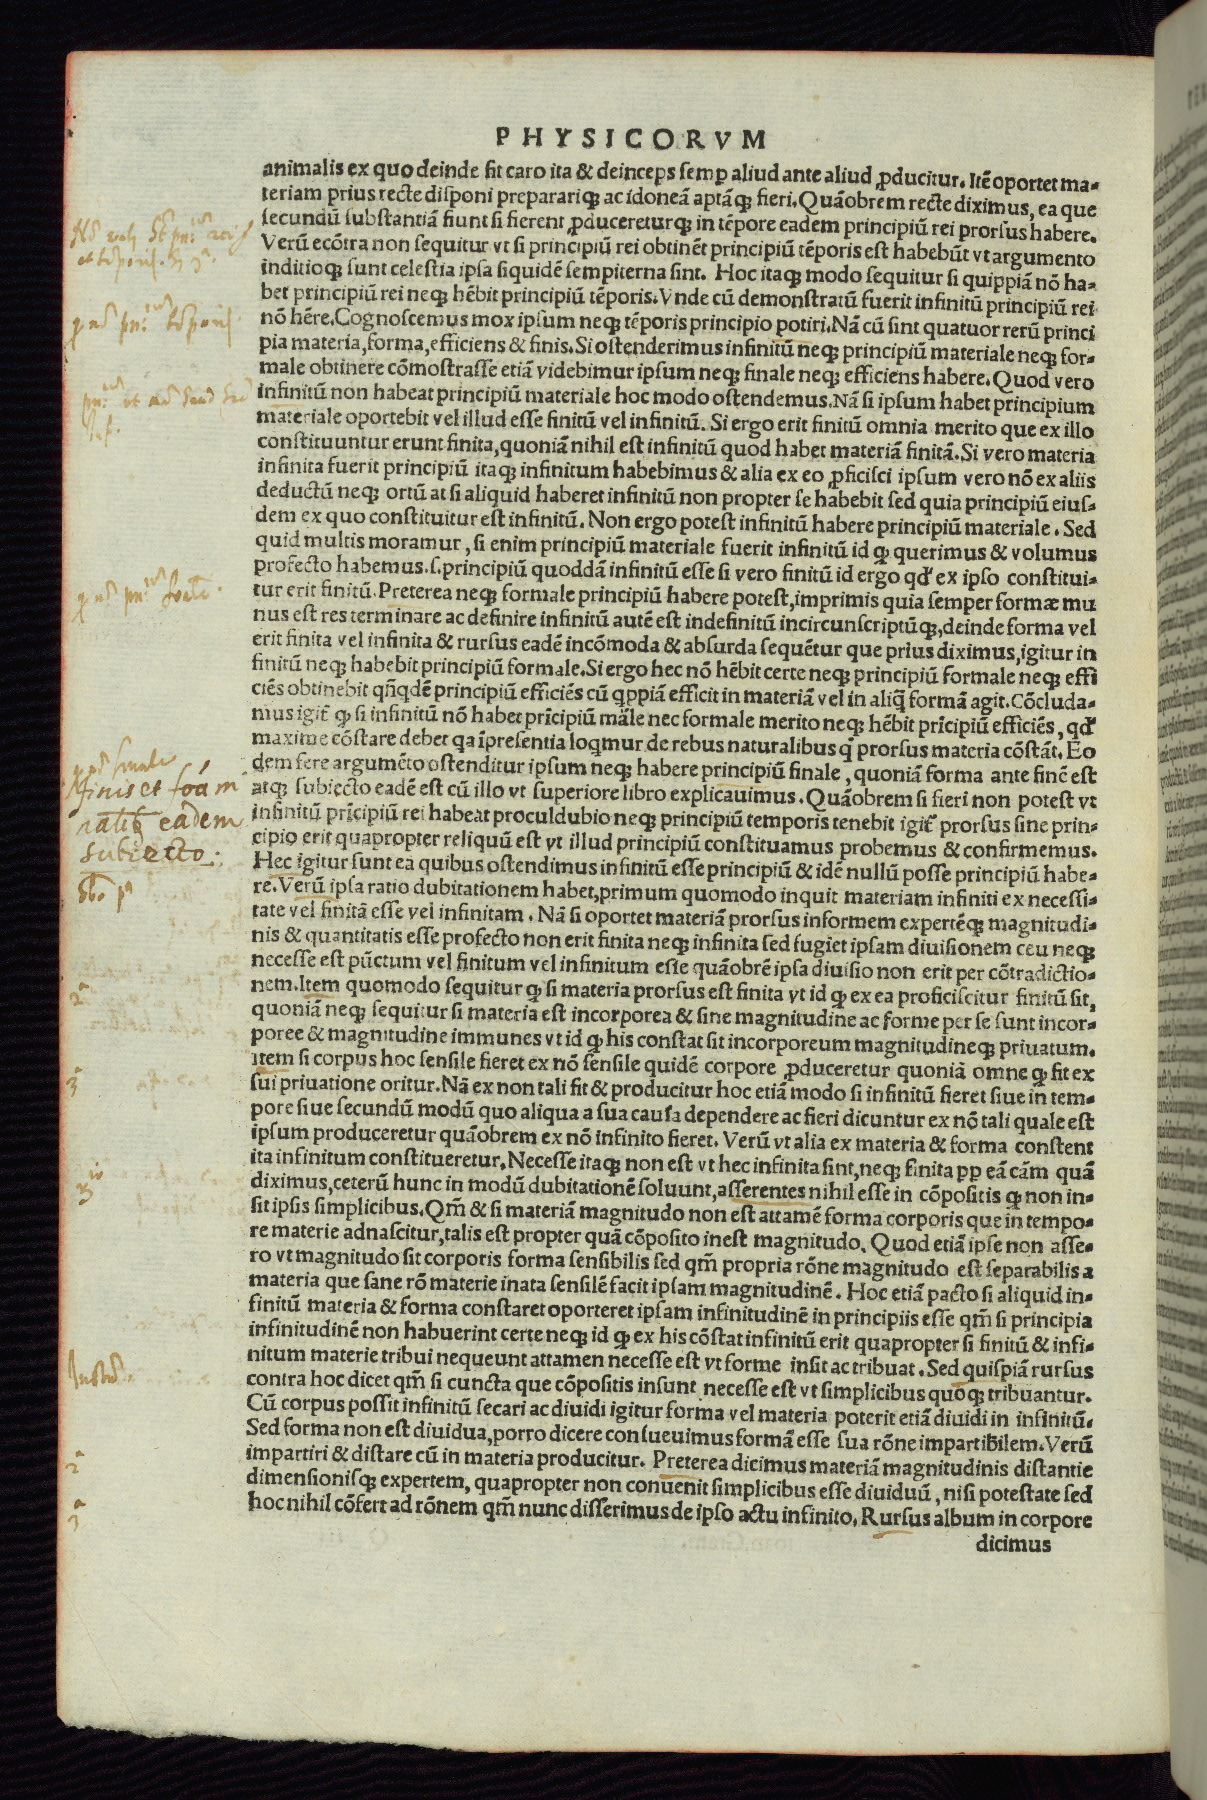 PHYSICORVM
animalis ex quo deinde fit caro ita & deinceps semp aliud ante aliud ꝓducitur. Itē oportet ma-
teriam prius recte disponi preparariqꝫ ac idoneā aptāqꝫ fieri. Quāobrem recte diximus, ea que
secundū substantiā fiunt si fierent ꝓducereturqꝫ in tēpore eadem principiū rei prorsus habere.
Verū ecōtra non sequitur vt si principiū rei obtinēt principiū tēporis est habebūt vt argumento
inditioqꝫ sunt celestia ipsa siquidē sempiterna sint. Hoc itaqꝫ modo sequitur si quippiā nō ha-
bet principiū rei neqꝫ hēbit principiū tēporis. Vnde cū demonstratū fuerit infinitū principiū rei
nō hēre. Cognoscemus mox ipsum neqꝫ tēporis principio potiri. Nā cū sint quatuor rerū princi
pia materia, forma, efficiens & finis. Si ostenderimus infinitū neqꝫ principiū materiale neqꝫ for-
male obtinere cōmostrasse etiā videbimur ipsum neqꝫ finale neqꝫ efficiens habere. Quod vero
infinitū non habeat principiū materiale hoc modo ostendemus. Nā si ipsum habet principium
materiale oportebit vel illud esse finitū vel infinitū. Si ergo erit finitū omnia merito que ex illo
constituuntur erunt finita, quoniā nihil est infinitū quod habet materiā finitā. Si vero materia
infinita fuerit principiū itaqꝫ infinitum habebimus & alia ex eo ꝓficisci ipsum vero nō ex aliis
deductū neqꝫ ortū at si aliquid haberet infinitū non propter se habebit sed quia principiū eius-
dem ex quo constituitur est infinitū. Non ergo potest infinitū habere principiū materiale. Sed
quid multis moramur, si enim principiū materiale fuerit infinitū id ꝙ querimus & volumus
profecto habemus. s. principiū quoddā infinitū esse si vero finitū id ergo qď ex ipso constitui-
tur erit finitū. Preterea neqꝫ formale principiū habere potest, imprimis quia semper formæ mu
nus est res terminare ac definire infinitū autē est indefinitū incircunscriptūqꝫ, deinde forma vel
erit finita vel infinita & rursus eadē incōmoda & absurda sequētur que prius diximus, igitur in
finitū neqꝫ habebit principiū formale. Si ergo hec nō hēbit certe neqꝫ principiū formale neqꝫ effi
ciēs obtinebit qn̄qdē principiū efficiēs cū qppiā efficit in materiā vel in aliq̄ formā agit. Cōcluda-
mus igit̄ ꝙ si infinitū nō habet prīcipiū māle nec formale merito neqꝫ hēbit prīcipiū efficiēs, qď
maxime cōstare debet qa īpresentia loqmur de rebus naturalibus q prorsus materia cōstāt. Eo
dem fere argumēto ostenditur ipsum neqꝫ habere principiū finale, quoniā forma ante finē est
atqꝫ subiecto eadē est cū illo vt superiore libro explicauimus. Quāobrem si fieri non potest vt
infinitū prīcipiū rei habeat proculdubio neqꝫ principiū temporis tenebit igit̄ prorsus sine prin-
cipio erit quapropter reliquū est vt illud principiū constituamus probemus & confirmemus.
Hec igitur sunt ea quibus ostendimus infinitū esse principiū & idē nullū posse principiū habe-
re. Verū ipsa ratio dubitationem habet, primum quomodo inquit materiam infiniti ex necessi-
tate vel finitā esse vel infinitam. Nā si oportet materiā prorsus informem expertēqꝫ magnitudi-
nis & quantitatis esse profecto non erit finita neqꝫ infinita sed fugiet ipsam diuisionem ceu neqꝫ
necesse est pūctum vel finitum vel infinitum esse quāobrē ipsa diuisio non erit per cōtradictio-
nem. Item quomodo sequitur ꝙ si materia prorsus est finita vt id ꝙ ex ea proficiscitur finitū sit,
quoniā neqꝫ sequitur si materia est incorporea & sine magnitudine ac forme per se sunt incor-
poree & magnitudine immunes vt id ꝙ his constat sit incorporeum magnitudineqꝫ priuatum.
item si corpus hoc sensile fieret ex nō sensile quidē corpore ꝓduceretur quoniā omne ꝙ fit ex
sui priuatione oritur. Nā ex non tali fit & producitur hoc etiā modo si infinitū fieret siue in tem-
pore siue secundū modū quo aliqua a sua causa dependere ac fieri dicuntur ex nō tali quale est
ipsum produceretur quāobrem ex nō infinito fieret. Verū vt alia ex materia & forma constent
ita infinitum constitueretur. Necesse itaqꝫ non est vt hec infinita sint, neqꝫ finita pp eā cām quā
diximus, ceterū hunc in modū dubitationē soluunt, asserentes nihil esse in cōpositis ꝙ non in-
sit ipsis simplicibus. Qm̄ & si materiā magnitudo non est attamē forma corporis que in tempo-
re materie adnascitur, talis est propter quā cōposito inest magnitudo. Quod etiā ipse non asse-
ro vt magnitudo sit corporis forma sensibilis sed qm̄ propria rōne magnitudo est separabilis a
materia que sane rō materie inata sensilē facit ipsam magnitudinē. Hoc etiā pacto si aliquid in-
finitū materia & forma constaret oporteret ipsam infinitudinē in principiis esse qm̄ si principia
infinitudinē non habuerint certe neqꝫ id ꝙ ex his cōstat infinitū erit quapropter si finitū & infi-
nitum materie tribui nequeunt attamen necesse est vt forme insit ac tribuat. Sed quispiā rursus
contra hoc dicet qm̄ si cuncta que cōpositis insunt necesse est vt simplicibus quoqꝫ tribuantur.
Cū corpus possit infinitū secari ac diuidi igitur forma vel materia poterit etiā diuidi in infinitū.
Sed forma non est diuidua, porro dicere consueuimus formā esse sua rōne impartibilem. Verū
impartiri & distare cū in materia producitur. Preterea dicimus materiā magnitudinis distantie
dimensionisqꝫ expertem, quapropter non conuenit simplicibus esse diuiduū, nisi potestate sed
hoc nihil cōfert ad rōnem qm̄ nunc disserimus de ipso actu infinito. Rursus album in corpore
dicimus
finis et
eadem
subiecto.
2ᵃ
3ᵃ
2ᵃ
3ᵃ